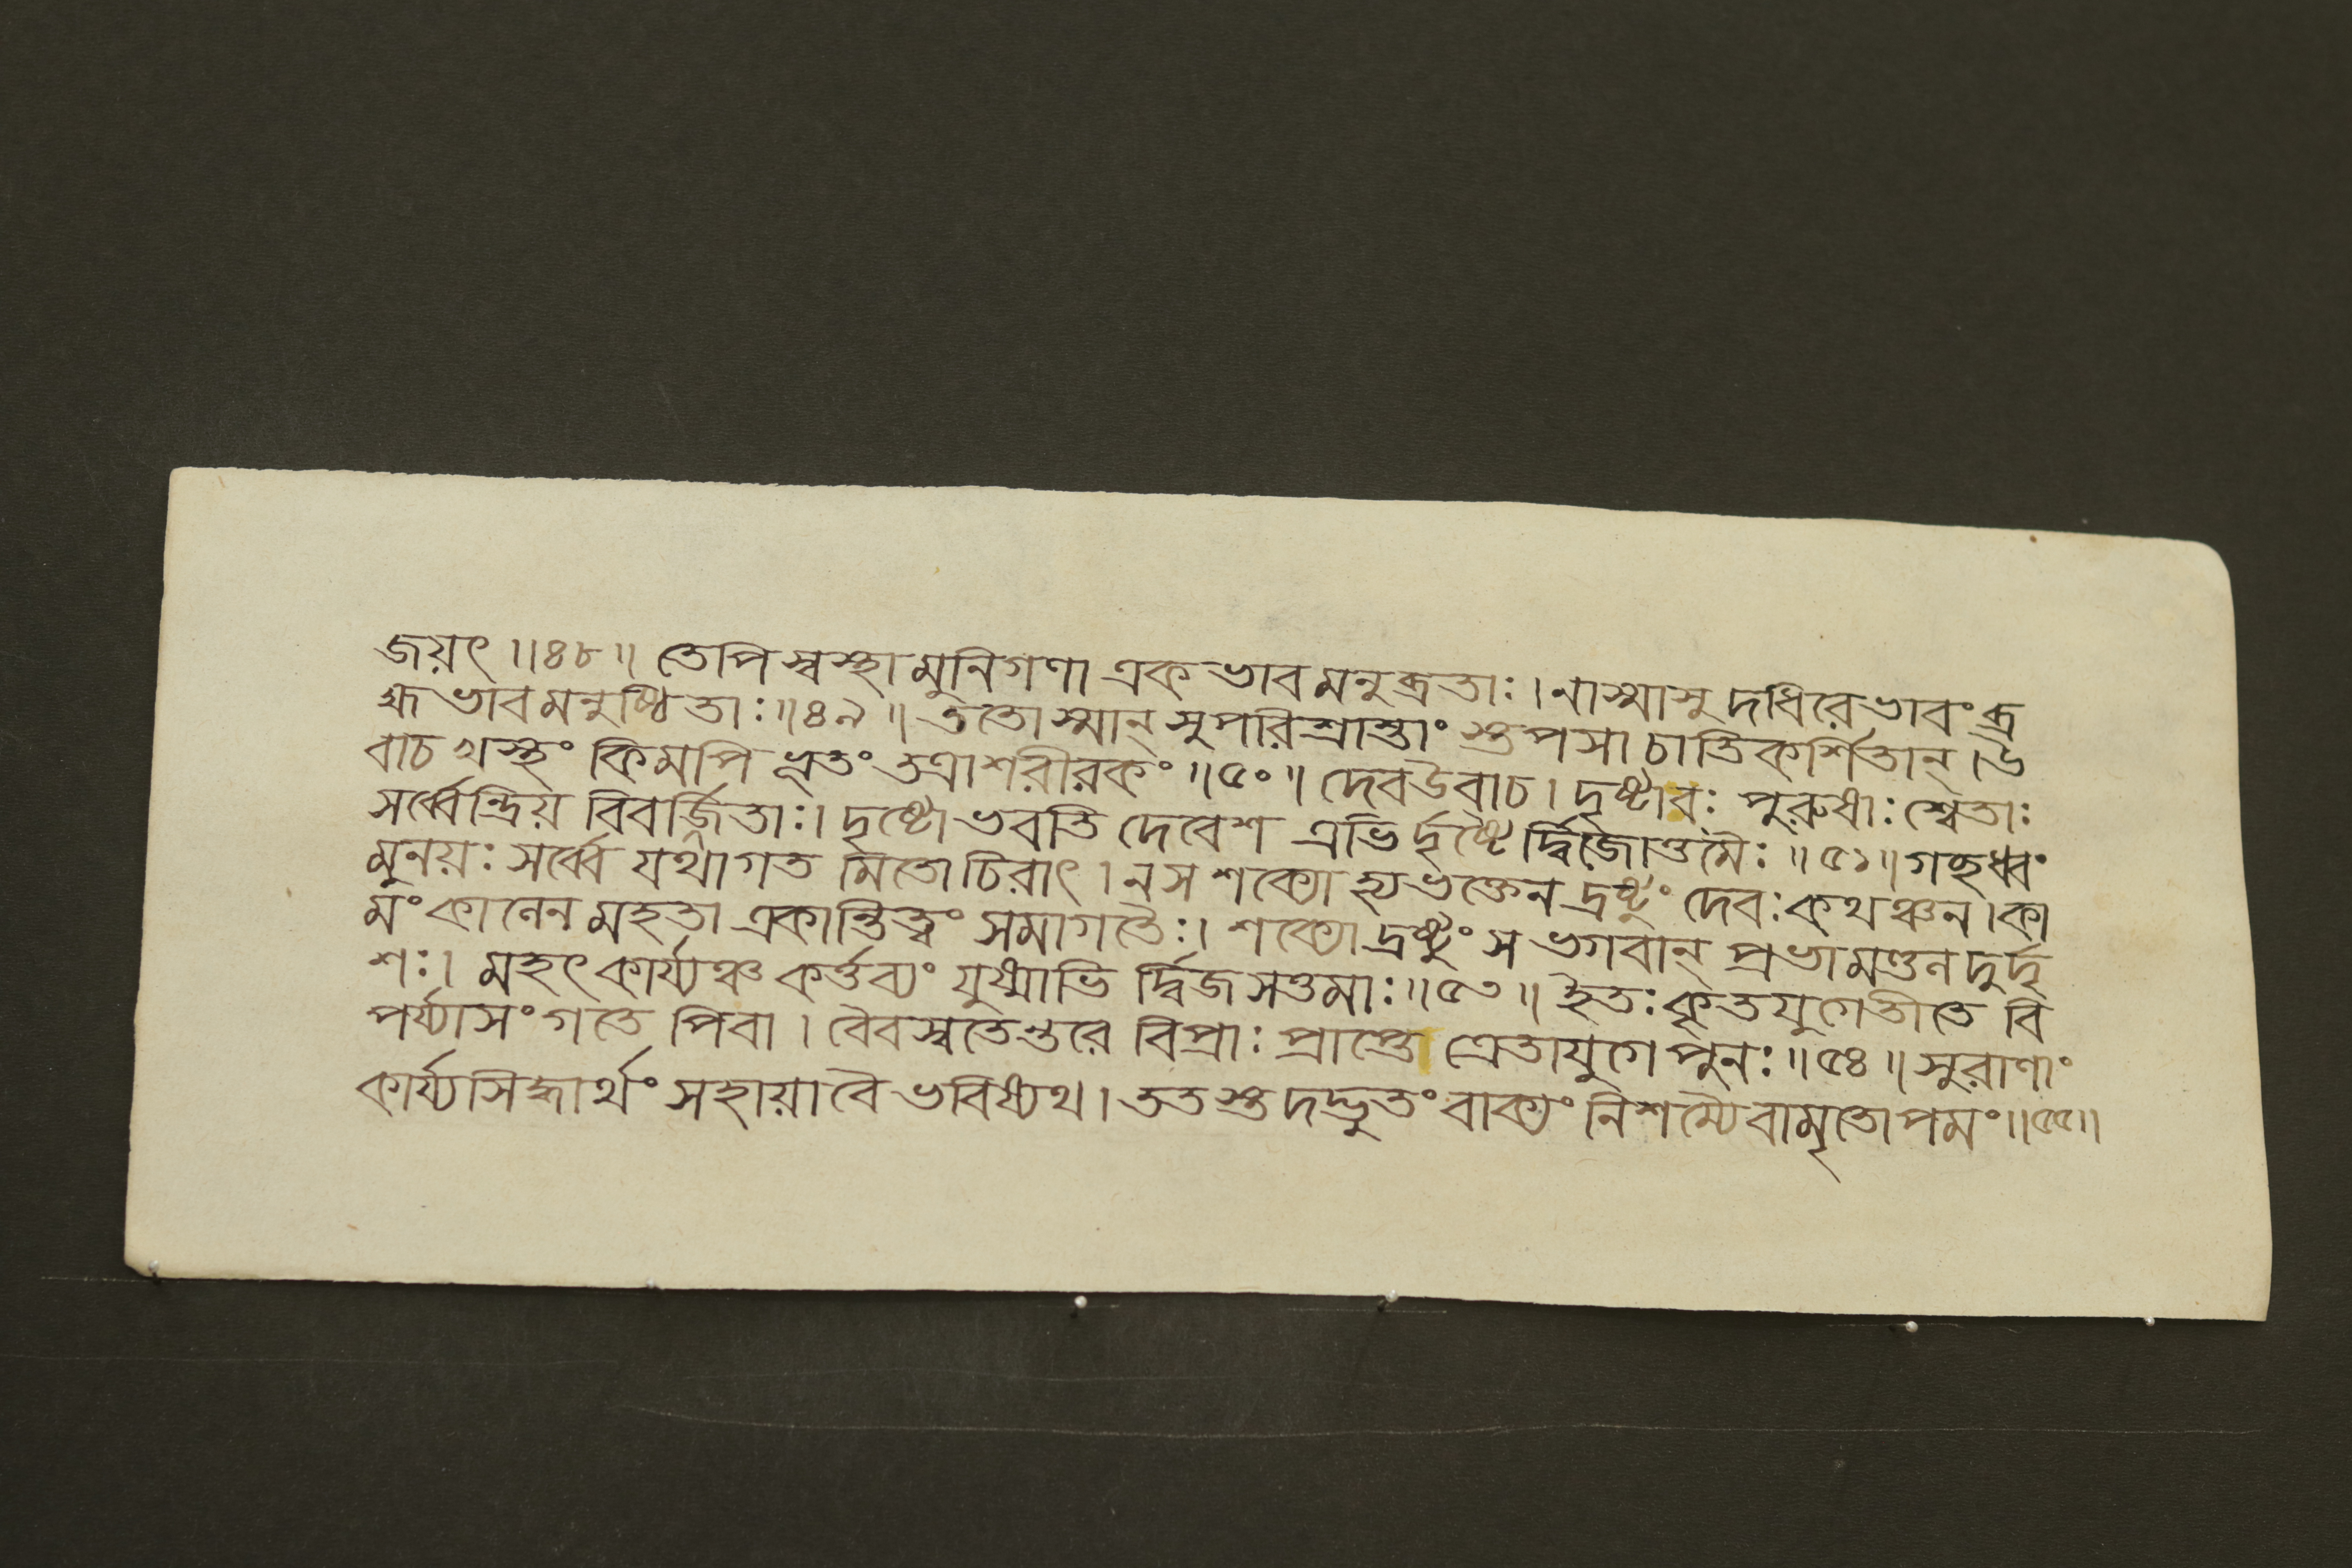 জয়ৎ ॥৪৮॥ তেপি স্বস্থা মুনিগণা একভাবমনুব্রতাঃ। নাস্মাসু দধিরে ভাবং ব্র
হ্মভাবমনুষ্ঠিতাঃ॥৪৯॥ ততোস্মান্ সুপরিশ্রান্তাং স্তপসা চাতিকর্শিতান্। উ
বাচ খস্থং কিমপি ভূতং তত্রাশরীরকং॥৫০॥ দেব উবাচ। দৃষ্টাবঃ পুরুষাঃ শ্বেতাঃ
সর্ব্বেন্দ্রিয় বিবর্জ্জিতাঃ। দৃষ্টো ভবতি দেবেশ এভি র্দৃষ্টৈ র্দ্বিজোত্তমৈঃ॥৫১॥ গচ্ছধ্বং
মুনয়ঃ সর্ব্বে যথাগত মিতোচিরাৎ। ন স শক্যো হ্যভক্তেন দ্রষ্টুং দেবঃ কথঞ্চন। কা
মং কানেন মহতা একান্তিত্বং সমাগতৈঃ। শক্যো দ্রষ্টুং স ভগবান্ প্রভামণ্ডন দুর্দৃ
শঃ। মহৎ কার্য্যঞ্চ কর্ত্তব্যং যুষ্মাভি র্দ্বিজসত্তমাঃ॥৫৩॥ ইতঃ কৃতযুগেতীতে বি
পর্য্যাসং গতে পিবা। বৈবস্বতেন্তরে বিপ্রাঃ প্রাপ্তে ত্রেতাযুগে পুনঃ॥৫৪॥ সুরাণাং
কার্য্যসিদ্ধ্যর্থং সহায়া বৈ ভবিষ্যথ। ততস্তদদ্ভুতং বাক্যং নিশম্যৈবামৃতোপমং॥৫৫॥